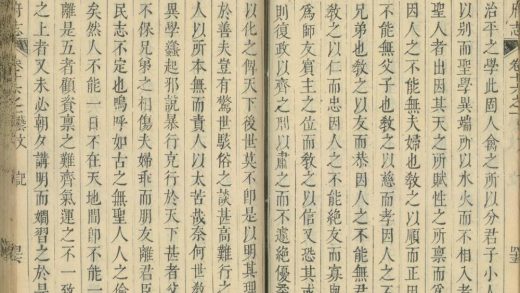 府志 卷十六之一
治平之學此周人禽之所以分君子小人
以别而聖學異端所以水火而不相入者
聖人者出因其天之所賦性之所禀而
因人之不能無夫婦也教之以順而正因
不能無父子也教之以慈而孝因人之
兄弟也教之以友而恭因人之不能無君
教之以仁而忠因人之不能絶友而寡與
為師友賓主之位而教之以信又恐其或
則復政以齊之刑以肅之而不遽絶優柔
以化之俾天下後世莫不卽是以明其理
於善夫豈有驚世駭俗之談甚高難行之
人以所本無而責人以太苦哉奈何世教
異學蠭起邪説暴行克行於天下甚者父
不保兄弟之相傷夫婦乖而朋友離君臣
民志不定也嗚呼如古之無聖人人之倫
矣然人不能一日不在天地間卽不能一
離是五者顧資禀之難齊氣運之不一致
之上者又未必朝夕講明而嫺習之於是
府志 卷十六之 藝文 記